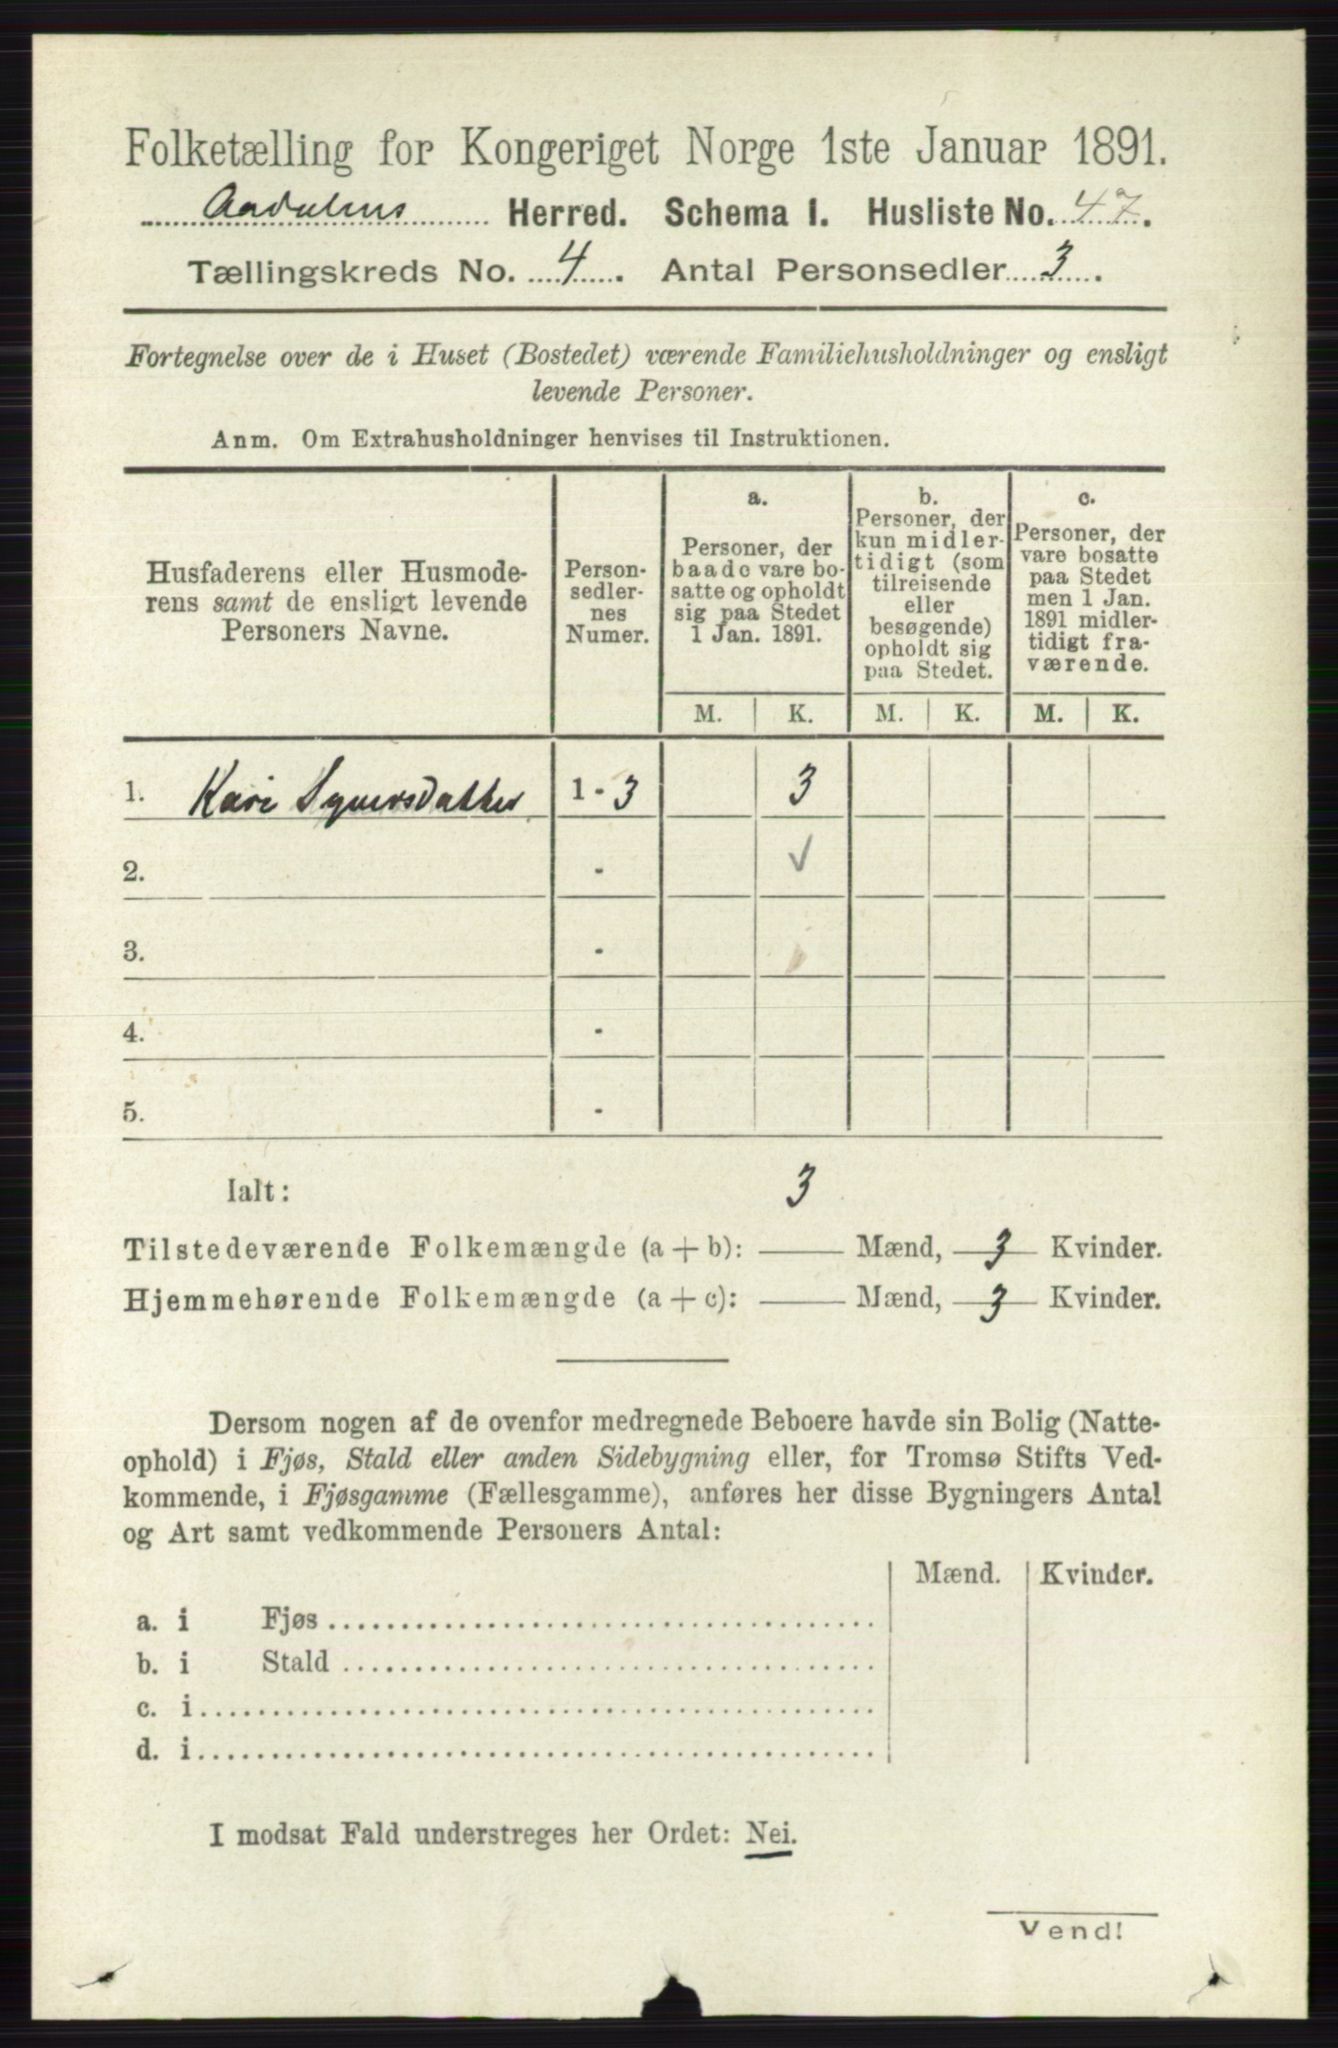 Folketælling for Kongeriget Norge 1ste Januar 1891.
Aadalens Herred. Schema I. Husliste No. 47.
Tællingskreds No. 4. Antal Personsedler 3.
Fortegnelse over de i Huset (Bostedet) værende Familiehusholdninger og ensligt
levende Personer.
Anm. Om Extrahusholdninger henvises til Instruktionen.
Husfaderens eller Husmode-
rens samt de ensligt levende
Personers Navne.
Person-
sedler-
nes
Numer.
a.
Personer, der
baade vare bo-
satte og opholdt
sig paa Stedet
1 Jan. 1891.
b.
Personer, der
kun midler-
tidigt (som
tilreisende
eller
besøgende)
opholdt sig
paa Stedet.
c.
Personer, der
vare bosatte
paa Stedet
men 1 Jan.
1891 midler-
tidigt fra-
værende.
M. K. M. K. M. K.
1. Kari Syversdatter 1 - 3 3
2. - ✓
3. -
4. -
5. -
Ialt: 3
Tilstedeværende Folkemængde (a + b): — Mænd, 3 Kvinder.
Hjemmehørende Folkemængde (a + c): — Mænd, 3 Kvinder.
Dersom nogen af de ovenfor medregnede Beboere havde sin Bolig (Natte-
ophold) i Fjøs, Stald eller anden Sidebygning eller, for Tromsø Stifts Ved-
kommende, i Fjøsgamme (Fællesgamme), anføres her disse Bygningers Antal
og Art samt vedkommende Personers Antal:
Mænd. Kvinder.
a. i Fjøs
b. i Stald
c. i
d. i
I modsat Fald understreges her Ordet: Nei.
Vend!